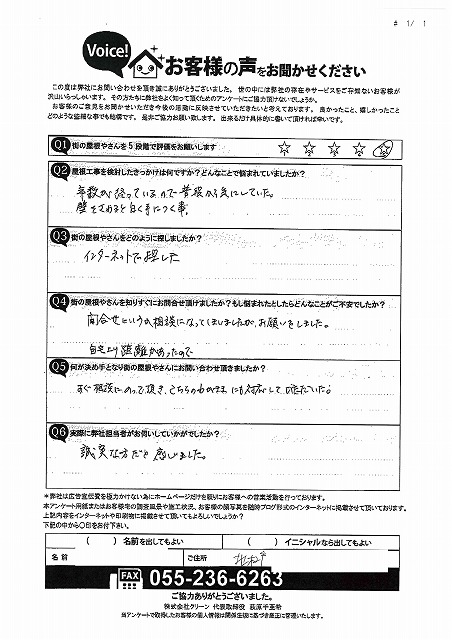 # 1/1
Voice!
お客様の声をお聞かせください
この度は弊社にお問い合わせを頂き誠にありがとうございました。世の中には弊社の存在やサービスをご存知ないお客様が
沢山いらっしゃいます。その方たちに弊社をよく知って頂くためのアンケートにご協力頂けないでしょうか。
お客様のご意見をお聞かせいただき今後の活動に反映させていただきたいと考えております。良かったこと、嬉しかったこと
どのような些細な事でも結構です。是非ご協力お願い致します。出来るだけ具体的に書いて頂ければ幸いです。
Q1 街の屋根やさんを5段階で評価をお願いします
☆ ☆ ☆ ☆ ☆
Q2 屋根工事を検討したきっかけは何ですか?どんなことで悩まれていましたか?
年数が経っているので
壁をさわると白く手につく事。
Q3 街の屋根やさんをどのように探しましたか?
インターネットで探した
Q4 街の屋根やさんを知りすぐにお問合せ頂けましたか?もし悩まれたとしたらどんなことがご不安でしたか?
問合せというか相談になってしまいましたが、お願いをしました。
自宅より距離があったので
Q5 何が決め手となり街の屋根やさんにお問い合わせ頂きましたか?
すぐ相談にのって頂き、こちらのわがままにも対応して頂いた。
Q6 実際に弊社担当者がお伺いしていかがでしたか?
誠実な方だと感じました。
*弊社は広告宣伝費を極力かけない為にホームページだけを頼りにお客様への営業活動を行っております。
本アンケート用紙またはお客様宅の調査風景や施工状況、お客様の顔写真を随時ブログ形式のインターネットに掲載させて頂いております。
上記内容をインターネットや印刷物に掲載させて頂いてもよろしいでしょうか?
下記の中から〇印をお付下さい。
( ) 名前を出してもよい ( ) イニシャルなら出してもよい
名前 ご住所
FAX 055-236-6263
ご協力ありがとうございました。
株式会社クリーン 代表取締役 萩原千亜希
当アンケートで取得したお客様の個人情報は関係生徒に基づき厳正に管理いたします。